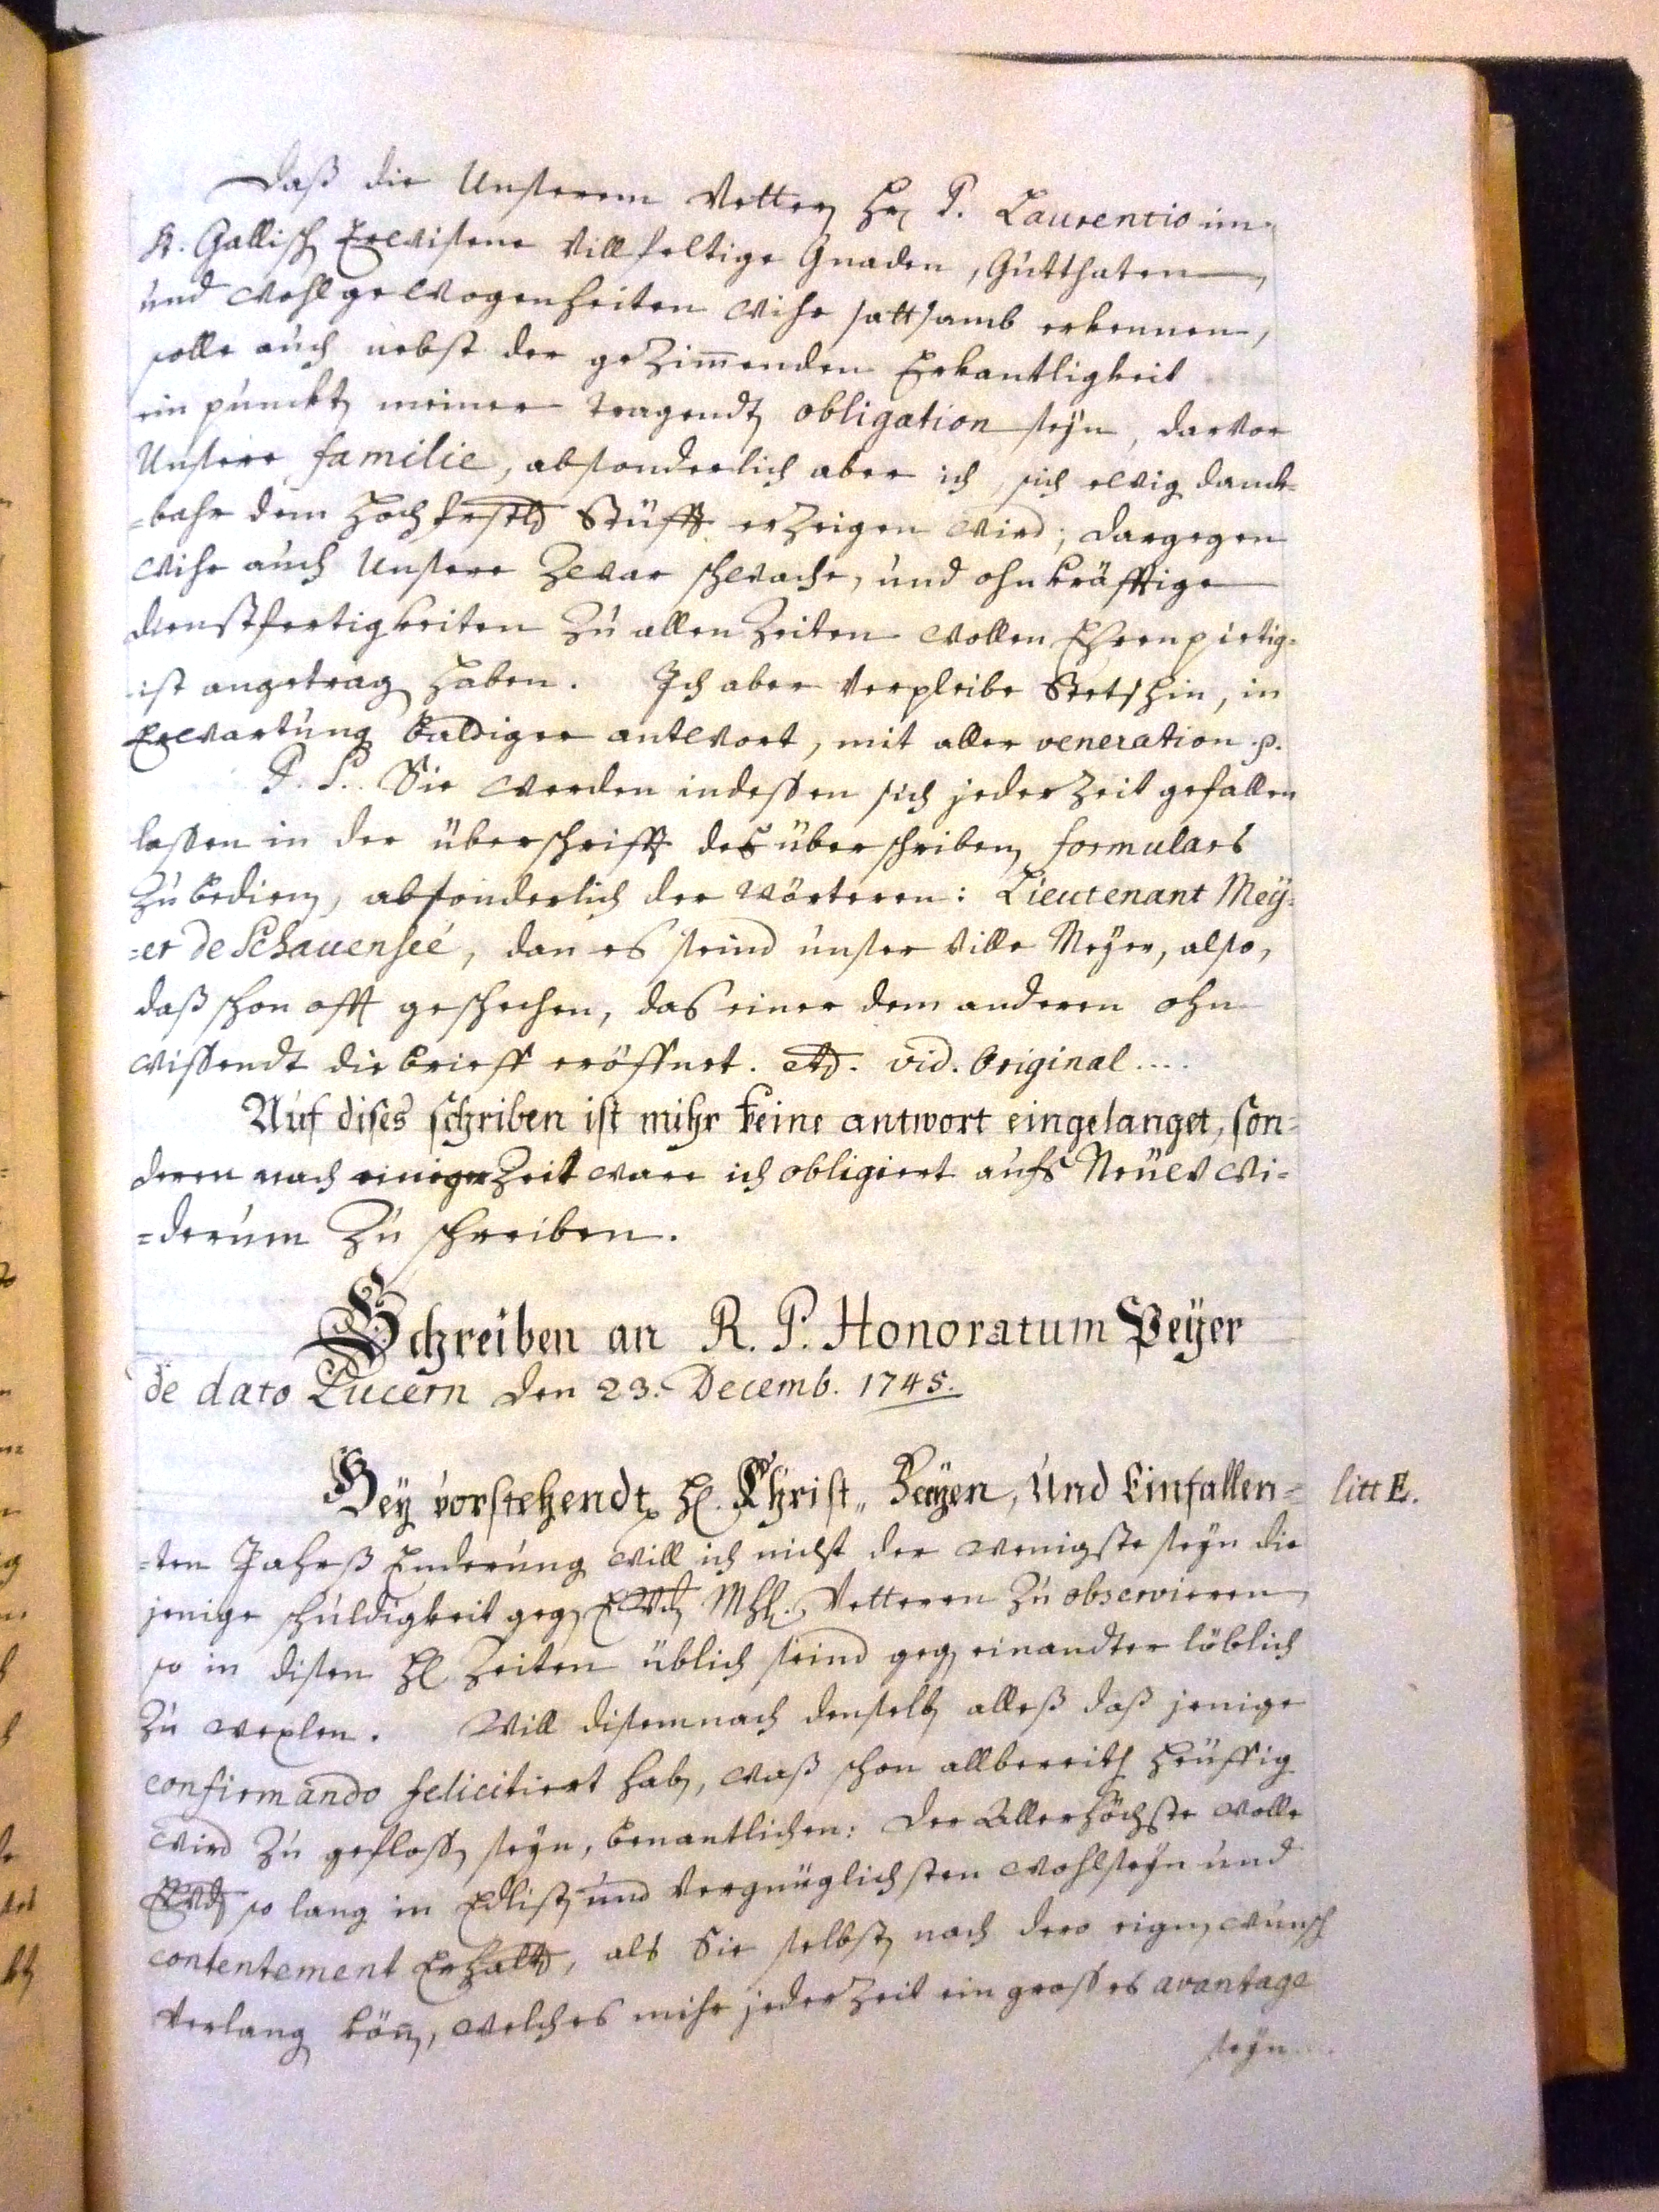 Daß die Unserem Vetteren Hr. P. Laurentio im
St. Gallisch Erwisene Villfeltige Gnaden, Gutthaten,
und Wohlgewogenheiten Wihr sattsamb erkennen,
solle auch nebst der gezimmenden Erkantligkeit
ein punckt meiner tragendt obligation seyn, darvor
Unsere familie, absonderlich aber ich, sich ewig danck=
=bahr dem Hochfrstl. Stüfft erzeigen wird; dargegen
Wihr auch Unsere zwar schwache, und ohnkräfftige
dienstfertigkeiten zu allen Zeiten wollen Ehrenpietig=
ist angetrag haben. Ich aber verpleibe Stetshin, in
Erwartung baldiger antwort, mit aller veneration. p.
P. S. Sie werden indessen sich jederzeit gefallen
lassen in der überschrifft des überschriben formulars
zu bedien, absonderlich der Wörteren: Lieutenant Mey=
=er de Schauenseé, dan es seind unser Ville Meyer, also,
daß schon offt geschechen, das einer dem anderen ohn
wissendt die brieff eröffnet. etc. vid. Original....
Auf dises schriben ist mihr keine antwort eingelanget, son=
deren nach einiger Zeit ware ich obligiert aufs Neüw wi=
=derum zu schreiben.
Schreiben an R. P. Honoratum Peyer
de dato Lucern den 23. Decemb. 1745.
Bey vorstehendt Hl. Christ,, Feyren, Und Einfallen= litt E.
=ten Jahrß Enderung will ich nicht der wenigste seyn die
jenige schuldigkeit geg Ewd MhH. Vetteren zu observieren,
so in disen Hl Zeiten üblich seind geg einandter löblich
zu wexlen. Will disemnach denselb alleß daß jenige
confirmando felicitiert hab, waß schon allbereith heüffig
wird zu gefloss seyn, benantlichen: Der Allerhöchste wolle
Ewd so lang in Edlist und Vergnüglichsten wohlseyn und
contentement Erhalt, als Sie selbst nach dero eign wunsch
Verlang kön, welches mihr jederzeit ein grosses avantage
seyn...